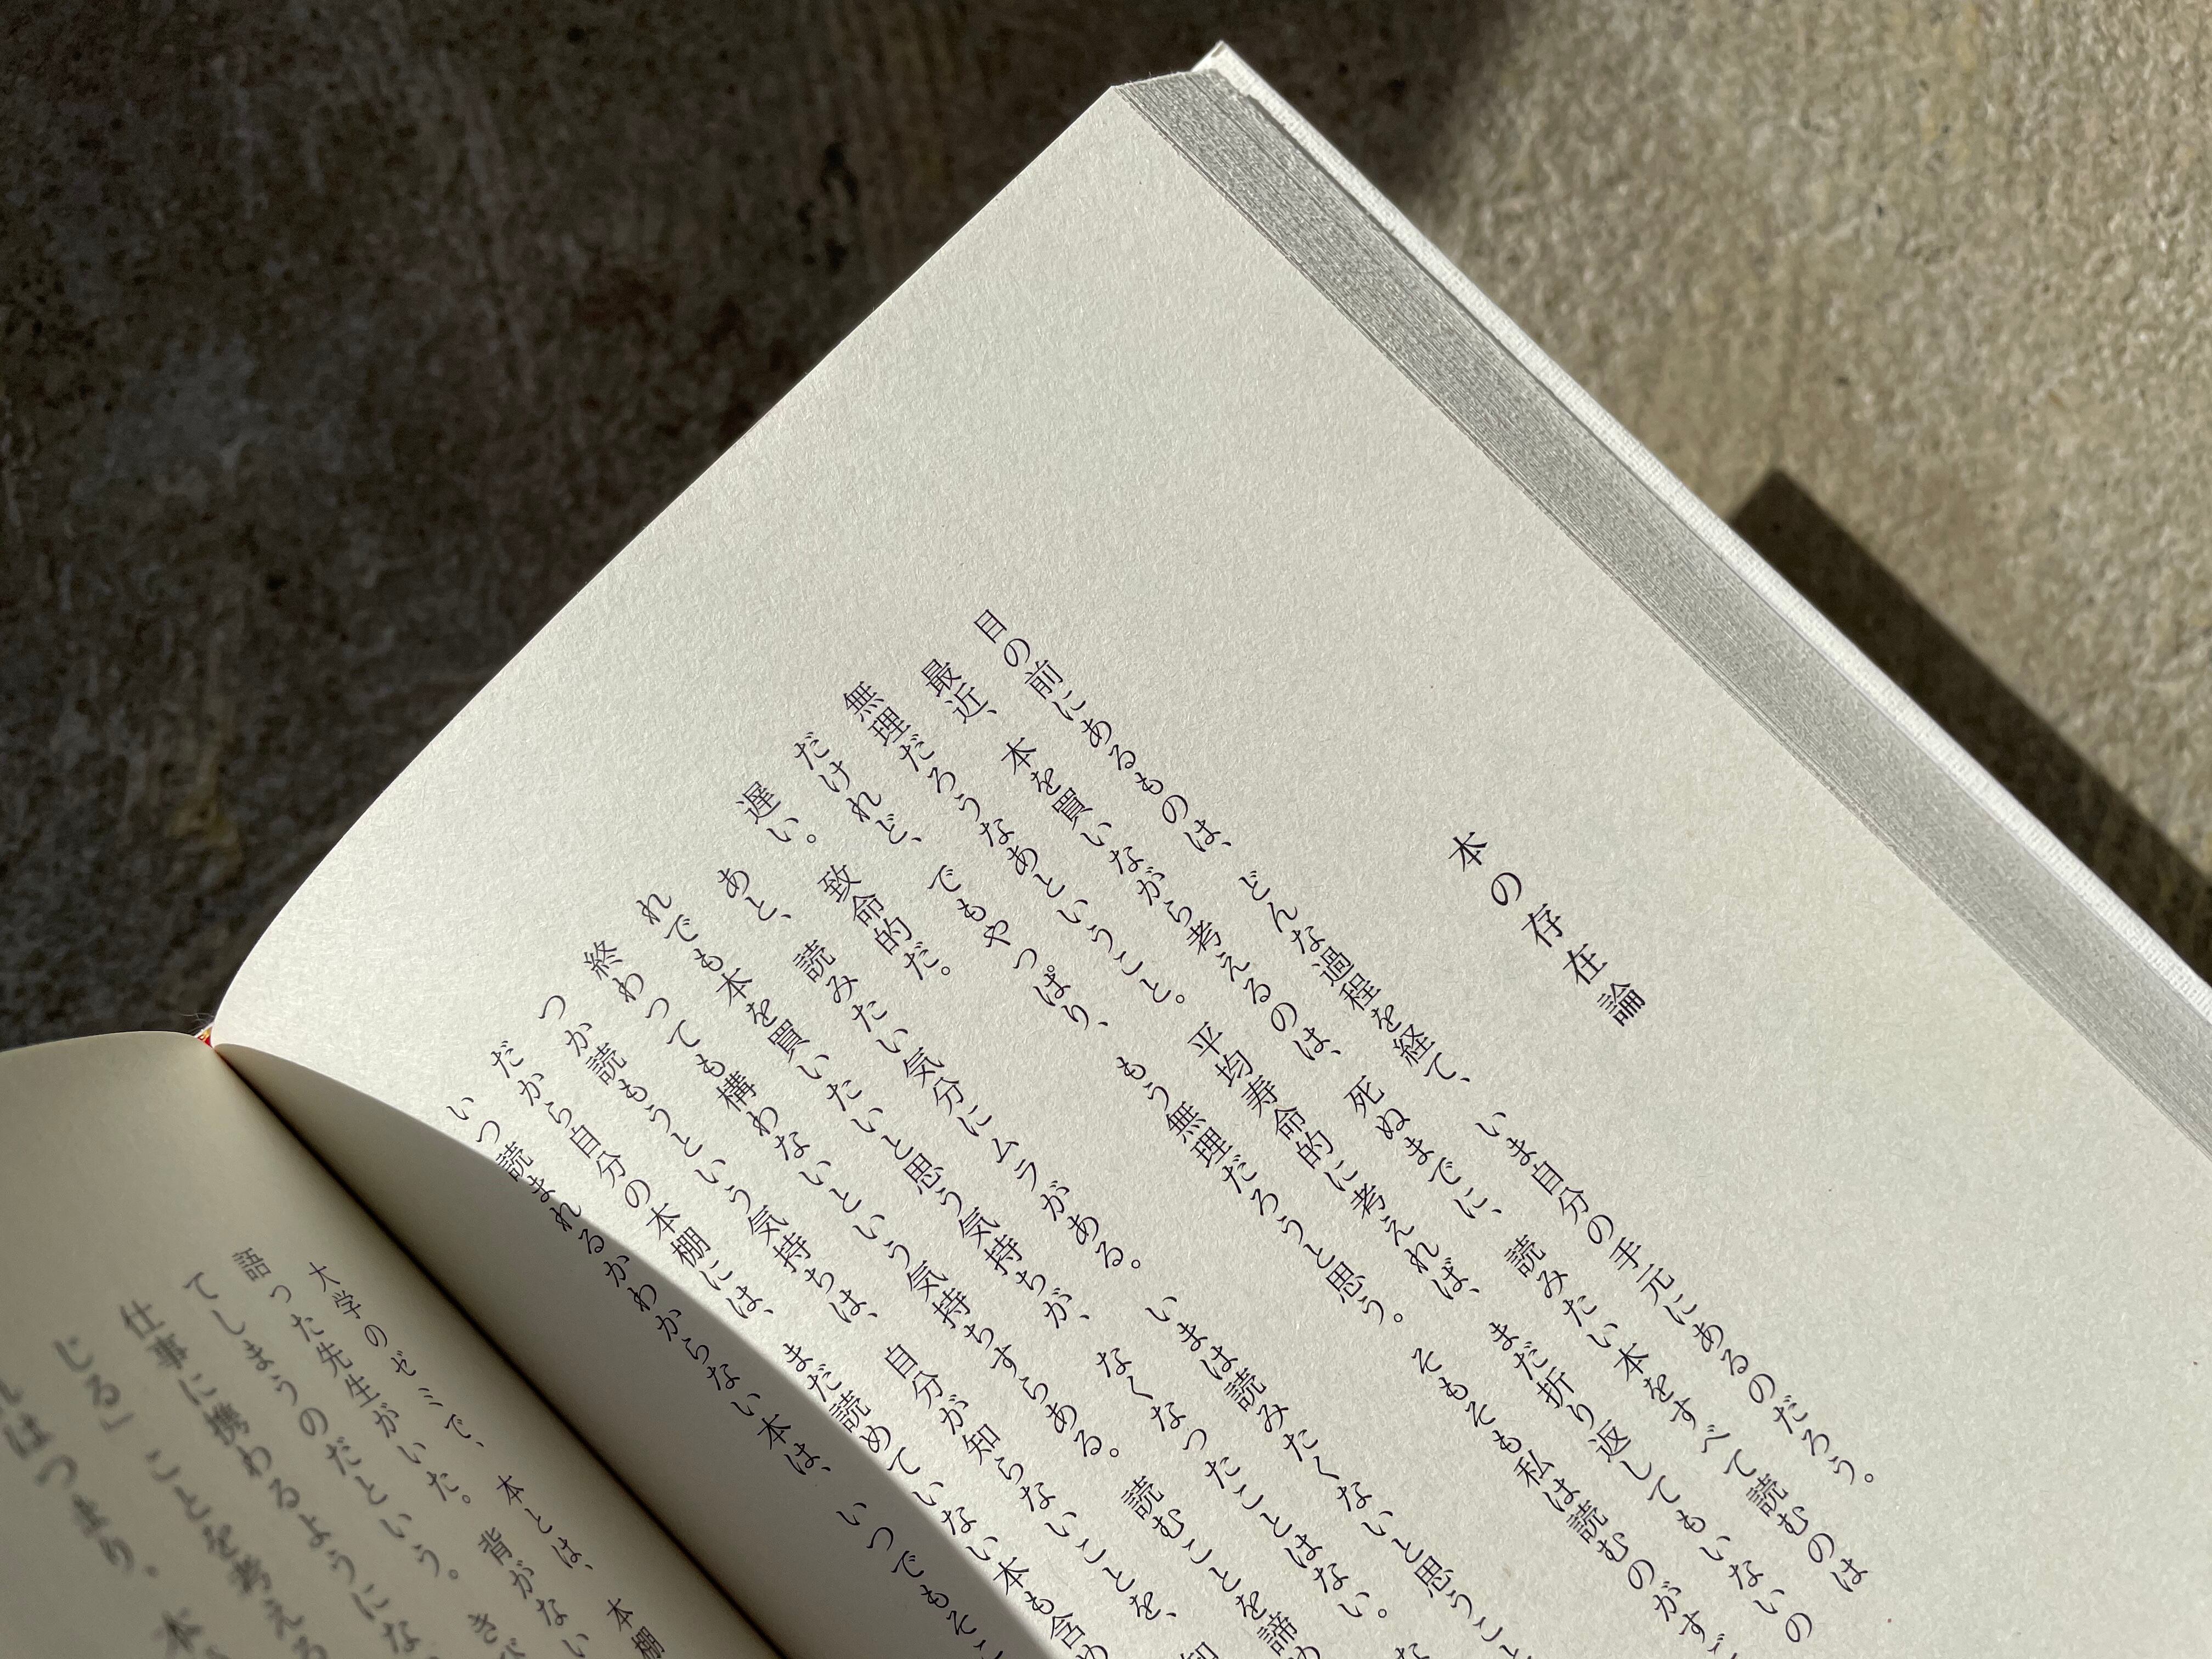 本の存在論
目の前にあるものは、どんな過程を経て、いま自分の手元にあるのだろう。
最近、本を買いながら考えるのは、死ぬまでに、読みたい本をすべて読むのは
無理だろうなあということ。平均寿命的に考えれば、まだ折り返してもいないの
だけれど、でもやっぱり、もう無理だろうと思う。そもそも私は読むのがす
遅い。致命的だ。
あと、読みたい気分にムラがある。いまは読みたくないと思うこと
れでも本を買いたいと思う気持ちが、なくなったことはない。た
終わっても構わないという気持ちすらある。読むことを諦め
つか読もうという気持ちは、自分が知らないことを、知
だから自分の本棚には、まだ読めていない本も含め
いつ読まれるかわからない本は、いつでもそこ
大学のゼミで、本とは、本棚
語った先生がいた。背がない
てしまうのだという。きび
仕事に携わるようにな
じる」ことを考える
れはつまり。本